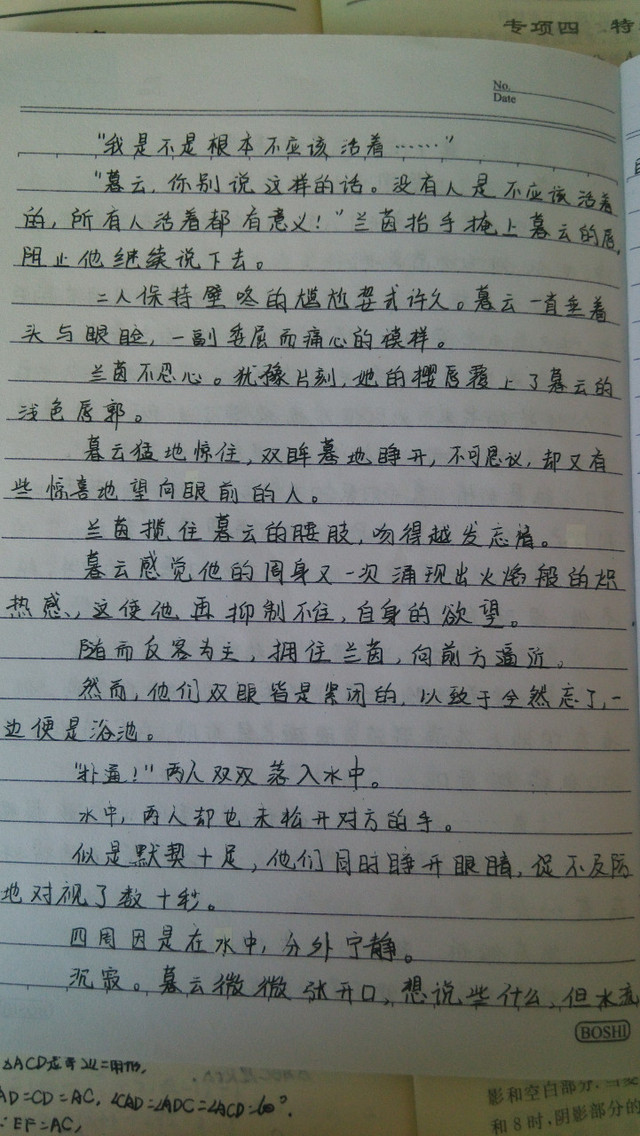 专项四 特
No.
Date
"我是不是根本不应该活着……"
"暮云,你别说这样的话。没有人是不应该活着
的,所有人活着都有意义!"兰茵抬手掩上暮云的唇,
阻止他继续说下去。
二人保持壁咚的尴尬姿式许久。暮云一直垂着
头与眼睑,一副委屈而痛心的模样。
兰茵不忍心。犹豫片刻,她的樱唇覆上了暮云的
浅色唇郭。
暮云猛地惊住,双眸蓦地睁开,不可思议,却又有
些惊喜地望向眼前的人。
兰茵揽住暮云的腰肢,吻得越发忘情。
暮云感觉他的周身又一次涌现出火焰般的炽
热感、,这使他再抑制不住,自身的欲望。
随而反客为主,拥住兰茵,向前方逼近。
然而,他们双眼皆是紧闭的,以致于全然忘了,一
边便是浴池。
"扑通!"两人双双落入水中。
水中,两人却也未松开对方的手。
似是默契十足,他们同时睁开眼睛,促不及防
地对视了数十秒。
四周因是在水中,分外宁静。
沉寂。暮云微微张开口,想说些什么,但水流
BOSHI
AD=CD=AC, ∠CAD=∠ADC=∠ACD=60°.
∵EF=AC,
影和空白部分.当
和8时,阴影部分的